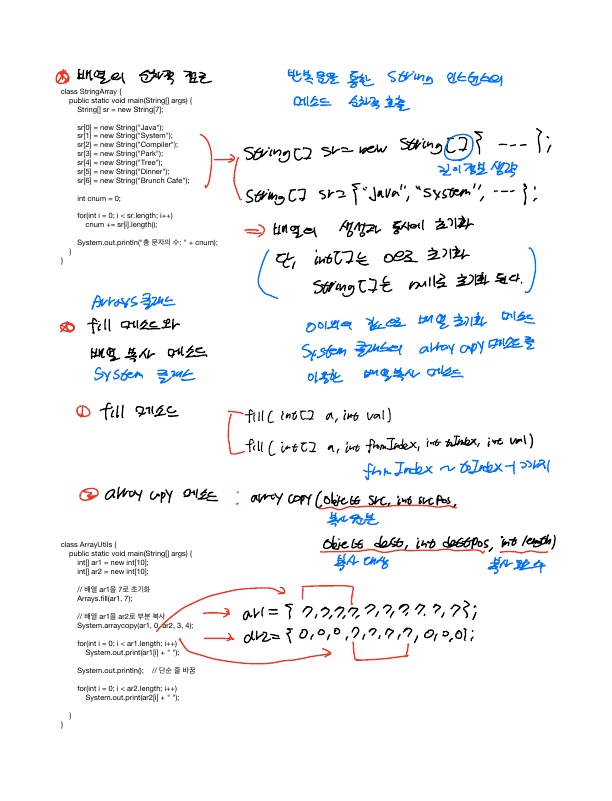 배열의 순차적 접근
반복문을 통한 String 인스턴스의
메소드 순차적 호출
class StringArray {
public static void main(String[] args) {
String[] sr = new String[7];
sr[0] = new String("Java");
sr[1] = new String("System");
sr[2] = new String("Compiler");
sr[3] = new String("Park");
sr[4] = new String("Tree");
sr[5] = new String("Dinner");
sr[6] = new String("Brunch Cafe");
int cnum = 0;
for(int i = 0; i < sr.length; i++)
cnum += sr[i].length();
System.out.println("총 문자의 수: " + cnum);
}
}
String[] sr = new String[] { --- };
길이정보 생략
String[] sr = {"Java", "System", --- };
⇒ 배열의 생성과 동시에 초기화
단, int[]는 0으로 초기화
String[]는 null로 초기화 된다.
Arrays 클래스
fill 메소드와
배열 복사 메소드
System 클래스
0이외의 값으로 배열 초기화 메소드
System 클래스의 arraycopy 메소드를
이용한 배열복사 메소드
① fill 메소드
fill(int[] a, int val)
fill(int[] a, int fromIndex, int toIndex, int val)
fromIndex ~ toIndex-1 까지
② arraycopy 메소드 : arraycopy(Object src, int srcPos,
복사 원본
Object dest, int destPos, int length)
복사 대상 복사 요소 수
class ArrayUtils {
public static void main(String[] args) {
int[] ar1 = new int[10];
int[] ar2 = new int[10];
// 배열 ar1을 7로 초기화
Arrays.fill(ar1, 7);
// 배열 ar1을 ar2로 부분 복사
System.arraycopy(ar1, 0, ar2, 3, 4);
for(int i = 0; i < ar1.length; i++)
System.out.print(ar1[i] + " ");
System.out.println(); // 단순 줄 바꿈
for(int i = 0; i < ar2.length; i++)
System.out.print(ar2[i] + " ");
}
}
ar1 = { 7,7,7,7,7,7,7,7,7,7};
ar2 = { 0,0,0,7,7,7,7,0,0,0};